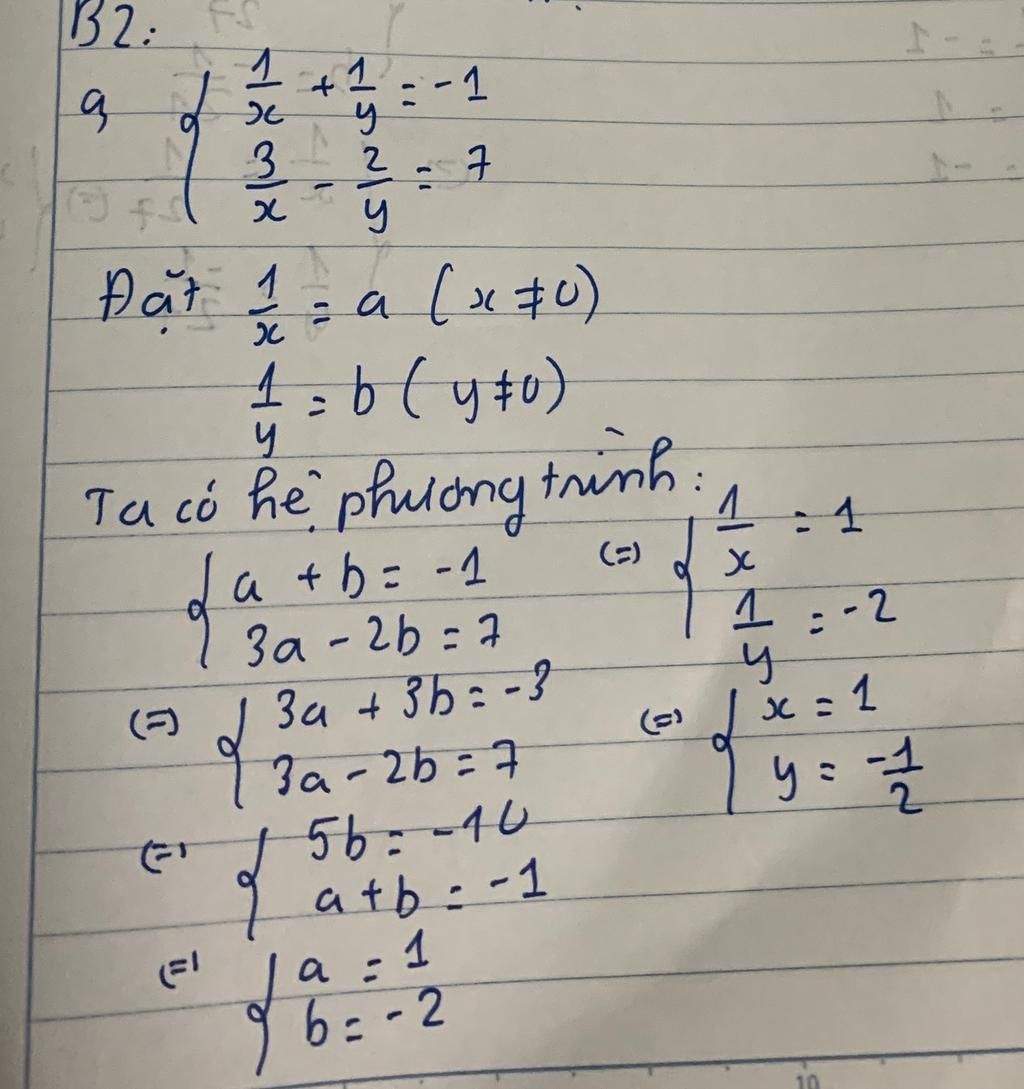 B2:
a, { 1/x + 1/y = -1
3/x - 2/y = 7
Đặt 1/x = a (x ≠ 0)
1/y = b (y ≠ 0)
Ta có hệ phương trình:
{ a + b = -1
3a - 2b = 7
(=) { 3a + 3b = -3
3a - 2b = 7
(=) { 5b = -10
a + b = -1
(=) { a = 1
b = -2
(=) { 1/x = 1
1/y = -2
(=) { x = 1
y = -1/2
10